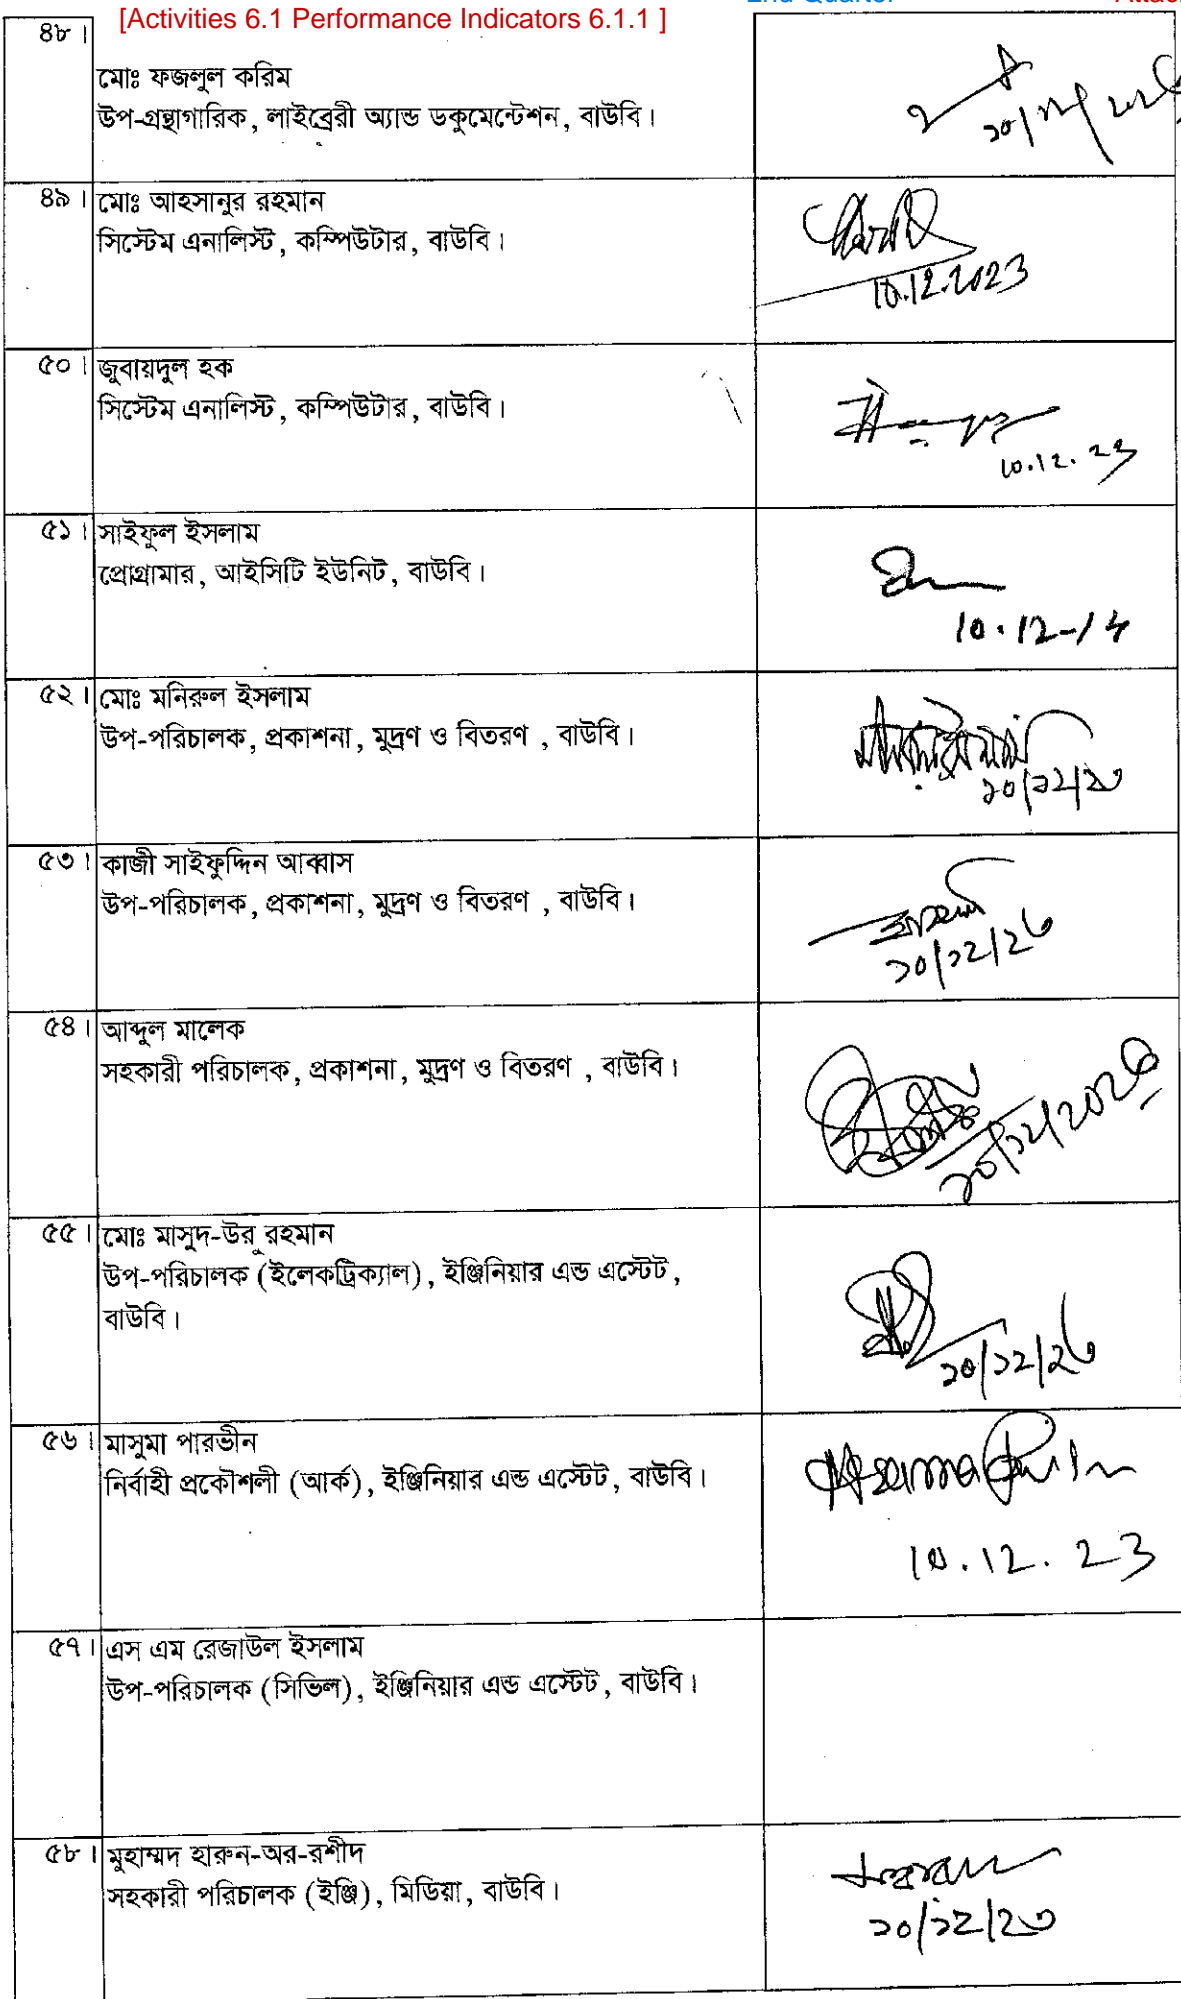 [Activities 6.1 Performance Indicators 6.1.1 ]
৪৮।
মোঃ ফজলুল করিম
উপ-গ্রন্থাগারিক, লাইব্রেরী অ্যান্ড ডকুমেন্টেশন, বাউবি।
৪৯। মোঃ আহসানুর রহমান
সিস্টেম এনালিস্ট, কম্পিউটার, বাউবি।
10.12.2023
৫০। জুবায়দুল হক
সিস্টেম এনালিস্ট, কম্পিউটার, বাউবি।
10.12.23
৫১। সাইফুল ইসলাম
প্রোগ্রামার, আইসিটি ইউনিট, বাউবি।
৫২। মোঃ মনিরুল ইসলাম
উপ-পরিচালক, প্রকাশনা, মুদ্রণ ও বিতরণ , বাউবি।
১০/১২/২৩
৫৩। কাজী সাইফুদ্দিন আব্বাস
উপ-পরিচালক, প্রকাশনা, মুদ্রণ ও বিতরণ , বাউবি।
১০/১২/২৩
৫৪। আব্দুল মালেক
সহকারী পরিচালক, প্রকাশনা, মুদ্রণ ও বিতরণ , বাউবি।
১০/১২/২০২৩
৫৫। মোঃ মাসুদ-উর রহমান
উপ-পরিচালক (ইলেকট্রিক্যাল), ইঞ্জিনিয়ার এন্ড এস্টেট,
বাউবি।
১০/১২/২৩
৫৬। মাসুমা পারভীন
নির্বাহী প্রকৌশলী (আর্ক), ইঞ্জিনিয়ার এন্ড এস্টেট, বাউবি।
10.12.23
৫৭। এস এম রেজাউল ইসলাম
উপ-পরিচালক (সিভিল), ইঞ্জিনিয়ার এন্ড এস্টেট, বাউবি।
৫৮। মুহাম্মদ হারুন-অর-রশীদ
সহকারী পরিচালক (ইঞ্জি), মিডিয়া, বাউবি।
১০/১২/২৩